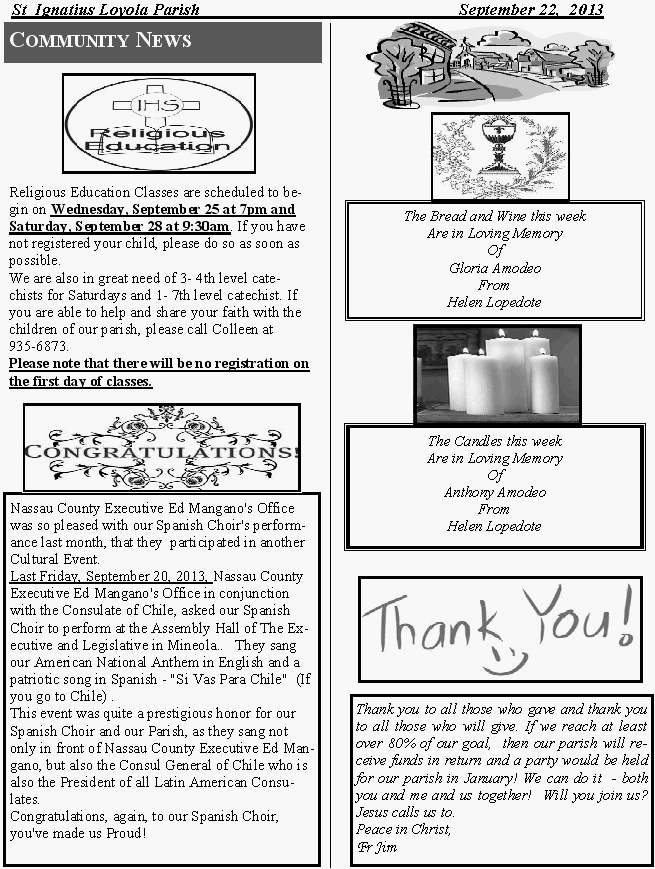 St Ignatius Loyola Parish September 22, 2013
COMMUNITY NEWS
IHS
Religious
Education
Religious Education Classes are scheduled to be-
gin on Wednesday, September 25 at 7pm and
Saturday, September 28 at 9:30am. If you have
not registered your child, please do so as soon as
possible.
We are also in great need of 3- 4th level cate-
chists for Saturdays and 1- 7th level catechist. If
you are able to help and share your faith with the
children of our parish, please call Colleen at
935-6873.
Please note that there will be no registration on
the first day of classes.
CONGRATULATIONS!
Nassau County Executive Ed Mangano's Office
was so pleased with our Spanish Choir's perform-
ance last month, that they participated in another
Cultural Event.
Last Friday, September 20, 2013, Nassau County
Executive Ed Mangano's Office in conjunction
with the Consulate of Chile, asked our Spanish
Choir to perform at the Assembly Hall of The Ex-
ecutive and Legislative in Mineola.. They sang
our American National Anthem in English and a
patriotic song in Spanish - "Si Vas Para Chile" (If
you go to Chile) .
This event was quite a prestigious honor for our
Spanish Choir and our Parish, as they sang not
only in front of Nassau County Executive Ed Man-
gano, but also the Consul General of Chile who is
also the President of all Latin American Consu-
lates.
Congratulations, again, to our Spanish Choir,
you've made us Proud!
The Bread and Wine this week
Are in Loving Memory
Of
Gloria Amodeo
From
Helen Lopedote
The Candles this week
Are in Loving Memory
Of
Anthony Amodeo
From
Helen Lopedote
Thank You!
Thank you to all those who gave and thank you
to all those who will give. If we reach at least
over 80% of our goal, then our parish will re-
ceive funds in return and a party would be held
for our parish in January! We can do it - both
you and me and us together! Will you join us?
Jesus calls us to.
Peace in Christ,
Fr Jim